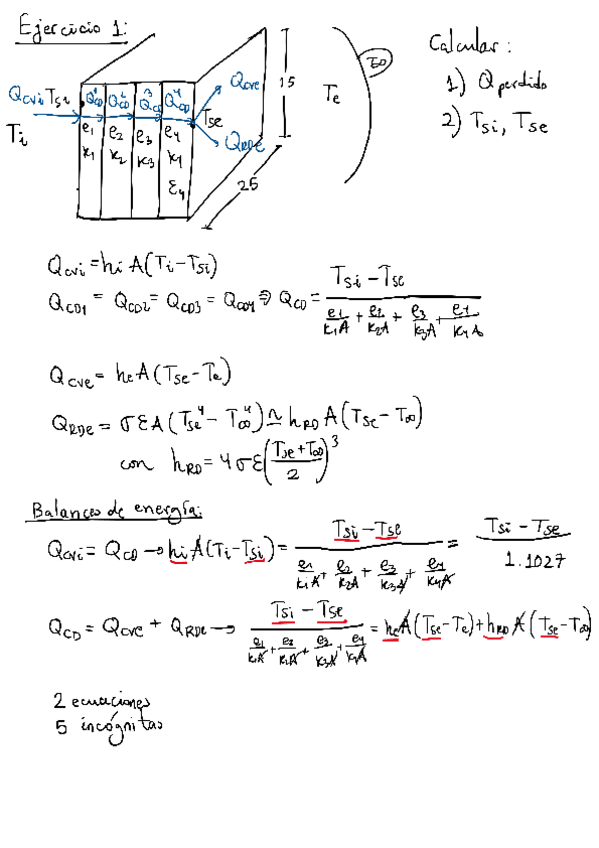 Ejercicio 1:
Calcular:
1) Q perdido
2) Tsi, Tse
Qcvi Tsi Q¹CD Q²CD Q³CD Q⁴CD Qcve
Ti Tse Te T∞
QRDe
e1 e2 e3 e4
k1 k2 k3 k4
ε4
15
25
Qcvi = hi A(Ti-Tsi)
QCD1 = QCD2 = QCD3 = QCD4 ⇒ QCD = (Tsi - Tse) / (e1/k1A + e2/k2A + e3/k3A + e4/k4A)
Qcve = he A(Tse-Te)
QRDe = σεA(Tse⁴ - T∞⁴) ≃ hRD A(Tse - T∞)
con hRD = 4σε((Tse+T∞)/2)³
Balances de energía:
Qcvi = QCD → hi A(Ti-Tsi) = (Tsi - Tse) / (e1/k1A + e2/k2A + e3/k3A + e4/k4A) = (Tsi - Tse) / 1.1027
QCD = Qcve + QRDe → (Tsi - Tse) / (e1/k1A + e2/k1A + e3/k3A + e4/k4A) = he A(Tse-Te) + hRD A(Tse-T∞)
2 ecuaciones
5 incógnitas